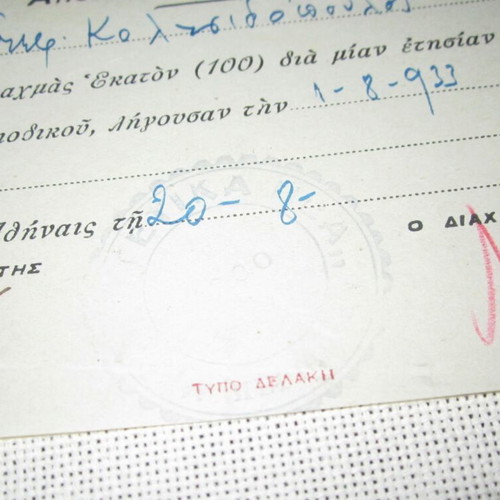 Καλτσιδόπουλος
αχμὰς Ἑκατὸν (100) διὰ μίαν ἐτησίαν
ιοδικοῦ, λήγουσαν τὴν 1-8-933
Ἀθήναις τῇ 20-8-
Ο ΔΙΑΧ
ΤΗΣ
ΤΥΠΟ ΔΕΛΑΚΗ